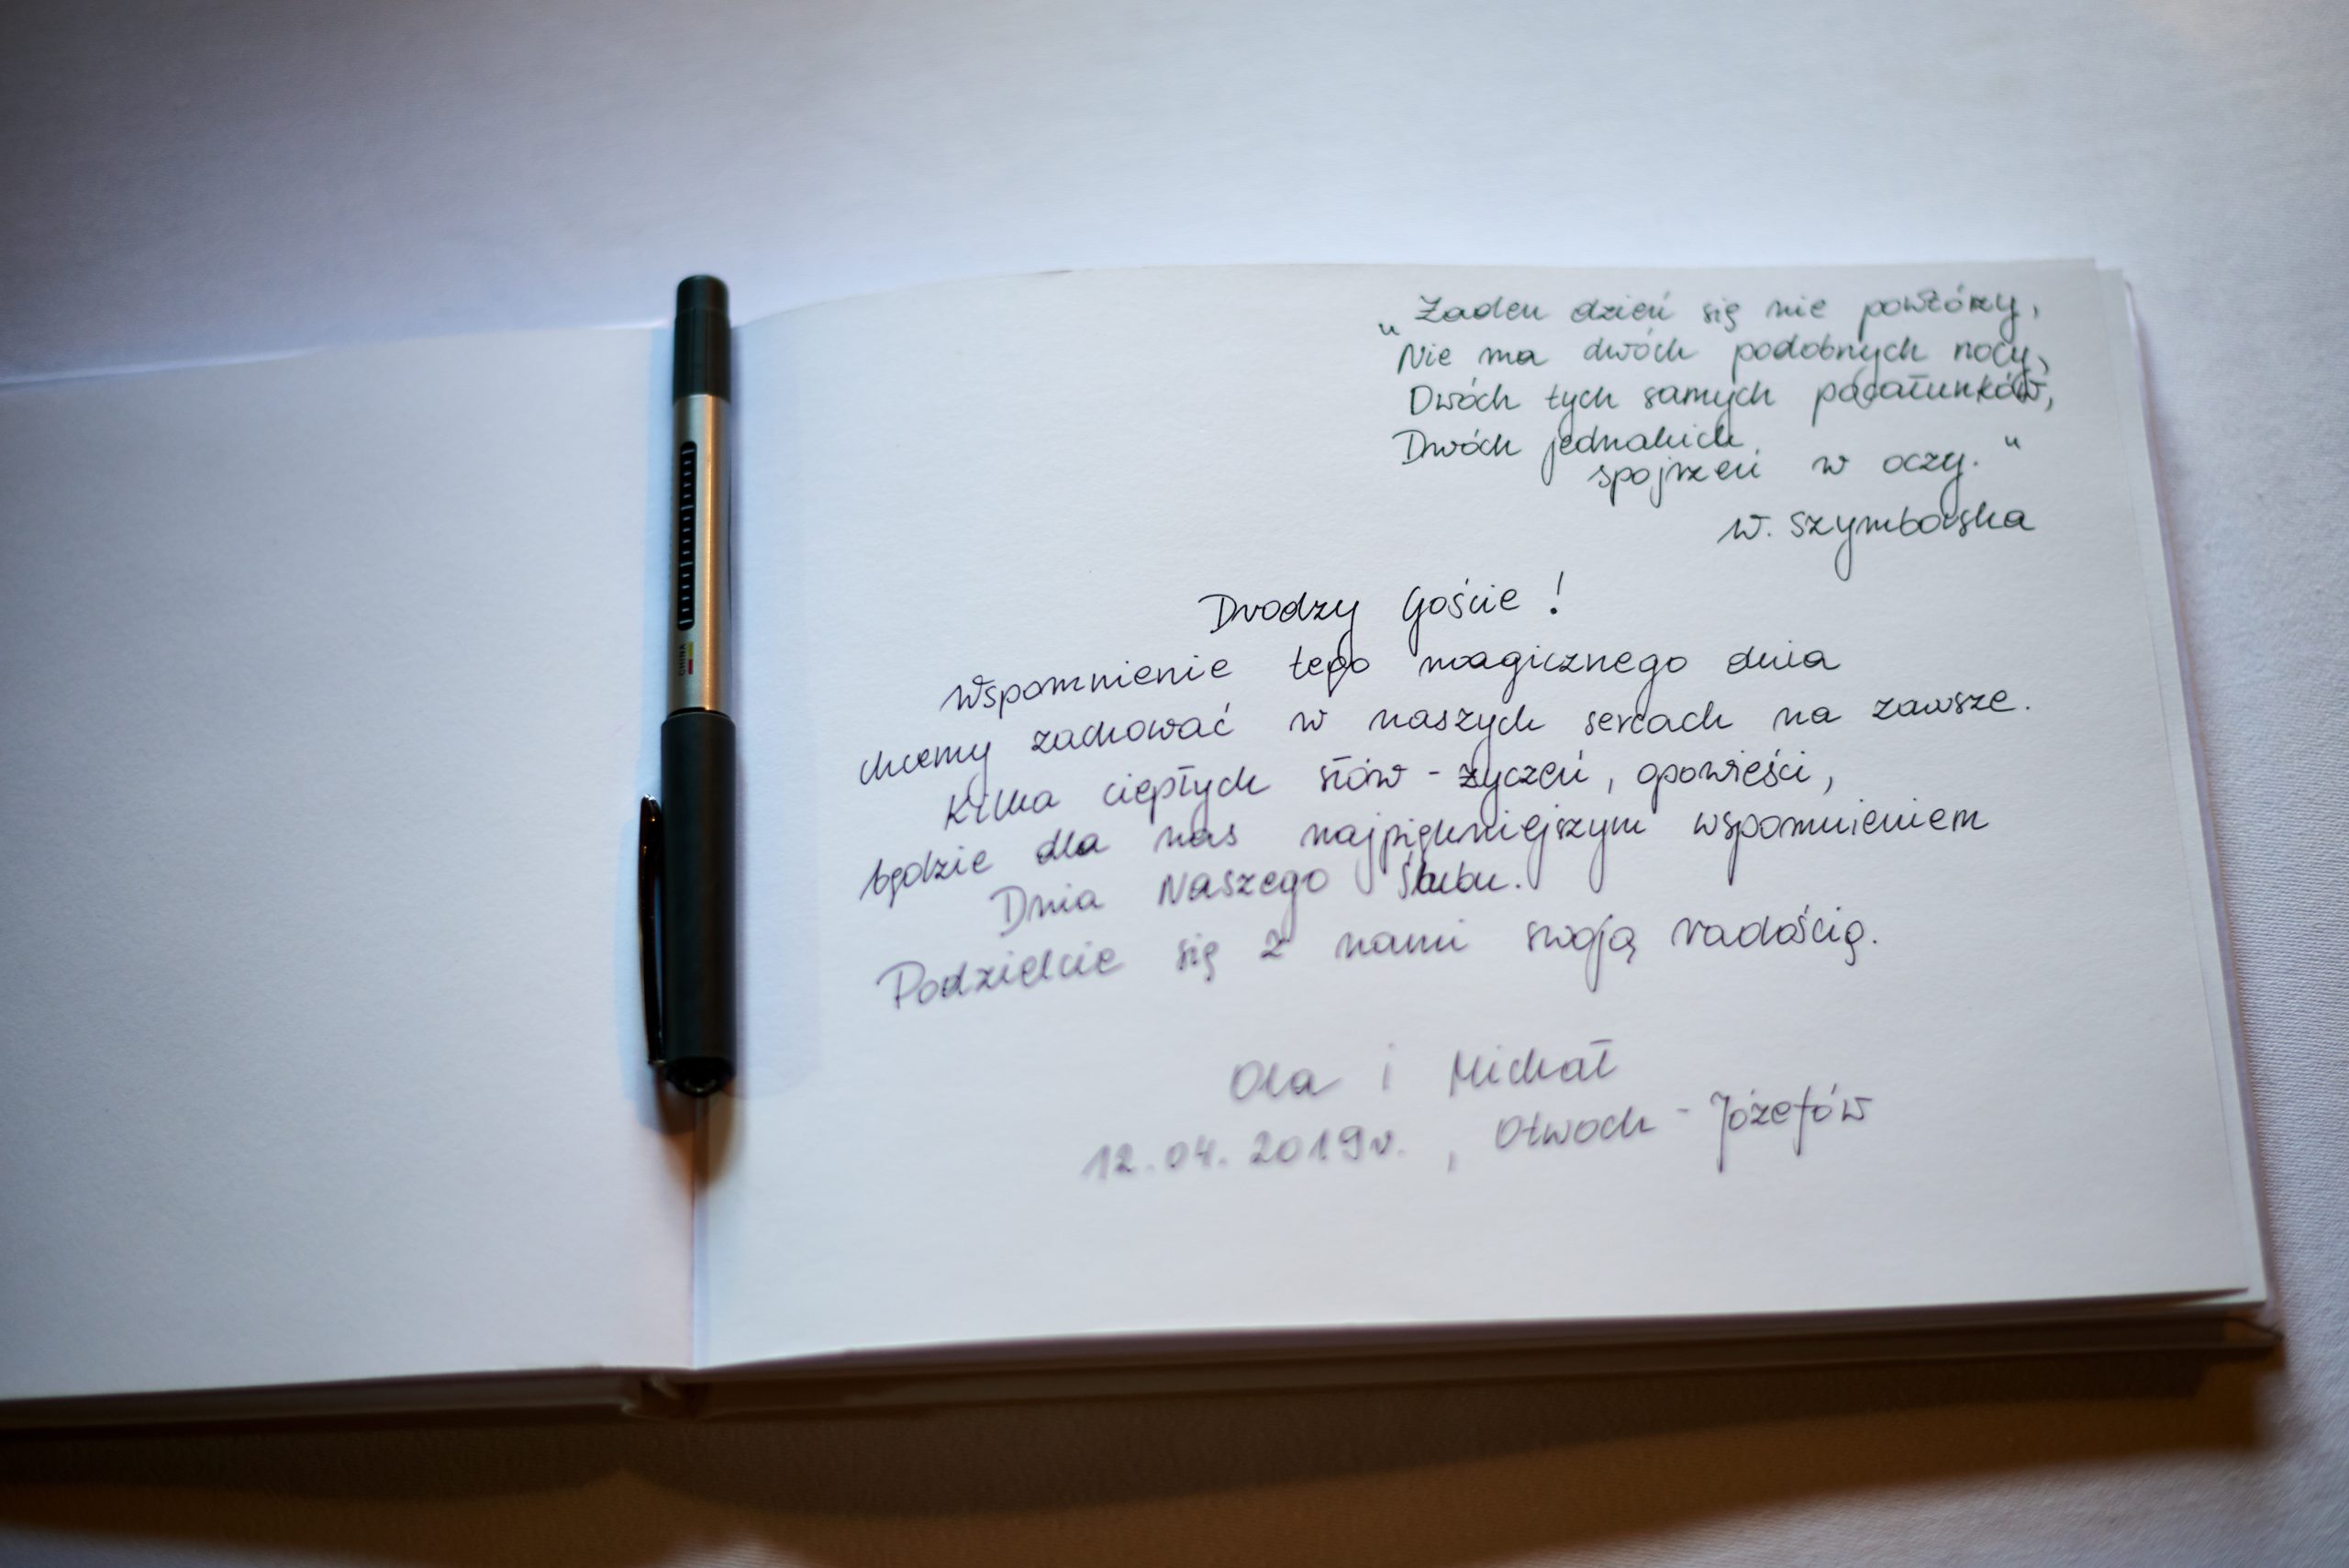 „Żaden dzień się nie powtórzy,
Nie ma dwóch podobnych nocy,
Dwóch tych samych pocałunków,
Dwóch jednakich
spojrzeń w oczy."
W. Szymborska
Drodzy Goście!
Wspomnienie tego magicznego dnia
chcemy zachować w naszych sercach na zawsze.
Kilka ciepłych słów - życzeń, opowieści,
będzie dla nas najpiękniejszym wspomnieniem
Dnia Naszego Ślubu.
Podzielcie się z nami swoją radością.
Ola i Michał
12.04.2019r., Otwock - Józefów
CHINA